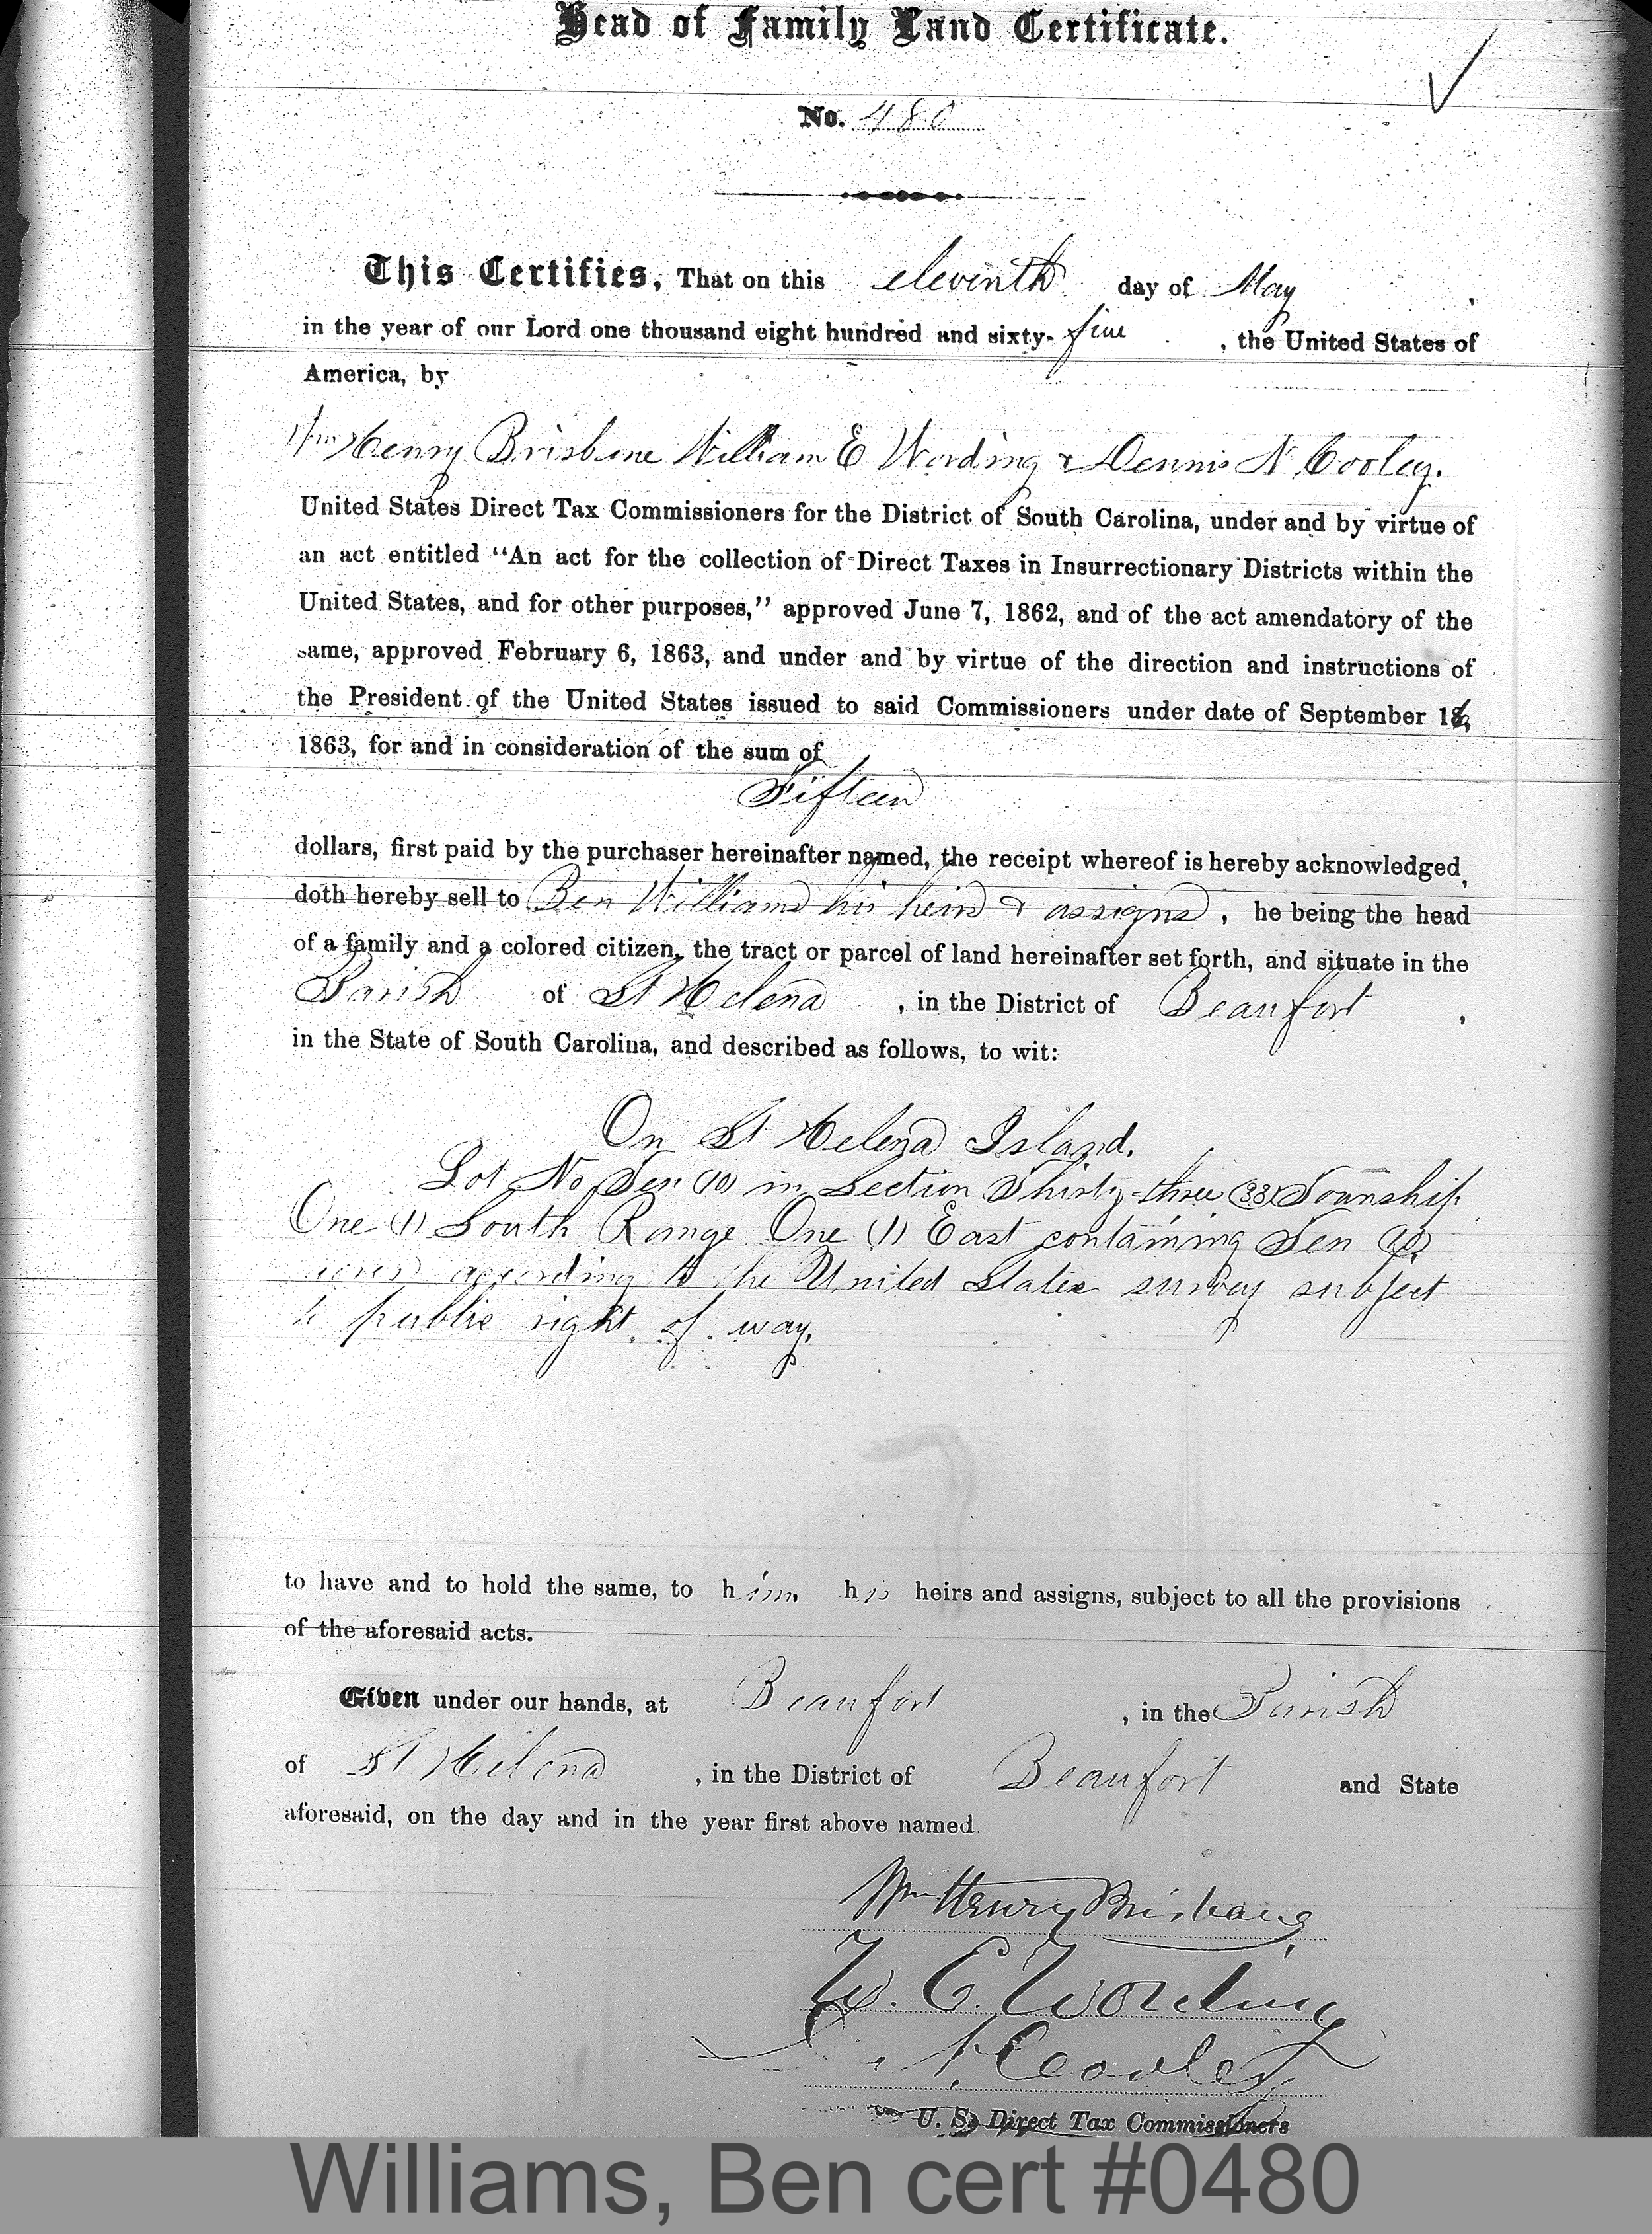 Head of Family Land Certificate.
No. 480
This Certifies, That on this eleventh day of May,
in the year of our Lord one thousand eight hundred and sixty-five, the United States of
America, by
Wm Henry Brisbane William E Wording & Dennis N Cooley.
United States Direct Tax Commissioners for the District of South Carolina, under and by virtue of
an act entitled "An act for the collection of Direct Taxes in Insurrectionary Districts within the
United States, and for other purposes," approved June 7, 1862, and of the act amendatory of the
same, approved February 6, 1863, and under and by virtue of the direction and instructions of
the President of the United States issued to said Commissioners under date of September
1863, for and in consideration of the sum of
Fifteen
dollars, first paid by the purchaser hereinafter named, the receipt whereof is hereby acknowledged,
doth hereby sell to Ben Williams his heirs & assigns, he being the head
of a family and a colored citizen, the tract or parcel of land hereinafter set forth, and situate in the
Parish of St Helena, in the District of Beaufort,
in the State of South Carolina, and described as follows, to wit:
On St Helena Island.
Lot No Ten (10) in Section Thirty-three (33) Township
One (1) South Range One (1) East containing Ten (10)
acres according to the United States survey subject
to public right of way.
to have and to hold the same, to him his heirs and assigns, subject to all the provisions
of the aforesaid acts.
Given under our hands, at Beaufort, in the Parish
of St Helena, in the District of Beaufort and State
aforesaid, on the day and in the year first above named.
Wm Henry Brisbane
W. E. Wording
N. Cooley
U. S. Direct Tax Commissioners
Williams, Ben cert #0480